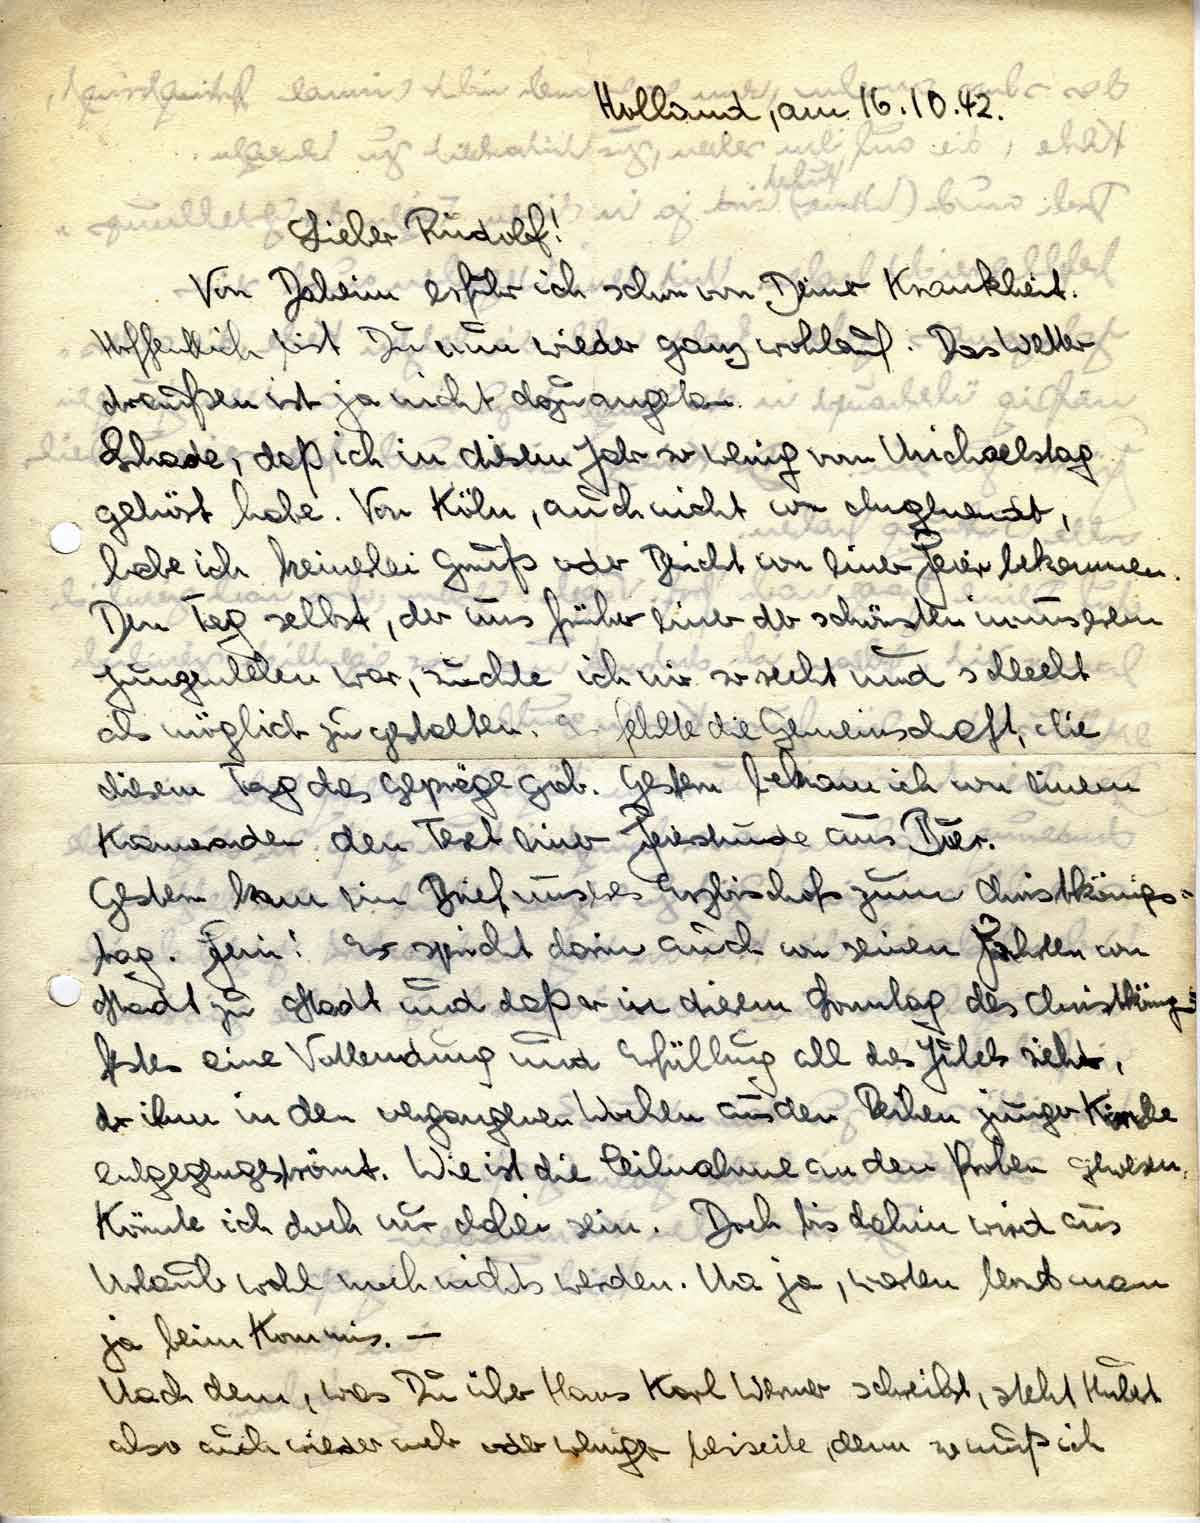 Holland, am 16.10.42.
Lieber Rudolf!
Von Daheim erfuhr ich schon von Deiner Krankheit.
Hoffentlich bist Du nun wieder ganz wohlauf. Das Wetter
draußen ist ja nicht dazu angetan.
Schade, daß ich in diesem Jahr so wenig vom Michaelstag
gehört habe. Von Köln, auch nicht von
habe ich keinerlei Gruß oder Bericht von einer Feier bekommen.
Den Tag selbst, der uns früher einer der schönsten in unserem
Jungenleben war, suchte ich mir so recht und schlecht
als möglich zu gestalten. Es fehlte die Gemeinschaft, die
diesem Tag das Gepräge gab. Gestern bekam ich von einem
Kameraden den Text einer Feierstunde aus Buer.
Gestern kam ein Brief unseres Erzbischofs zum Christkönigs-
tag. Fein! Er spricht darin auch von seinen Fahrten von
Stadt zu Stadt und daß er in diesem Sonntag des Christkönigs-
festes eine Vollendung und Erfüllung all des Jubels sieht,
der ihm in den vergangenen Wochen aus den Reihen junger Kirche
entgegengeströmt. Wie ist die Teilnahme an den Proben gewesen.
Könnte ich doch nur dabei sein. Doch bis dahin wird aus
Urlaub wohl noch nichts werden. Na ja, warten lernt man
ja beim Kommis. —
Nach dem, was Du über Hans Karl Werner schreibst, steht Hubert
also auch wieder mehr oder weniger beiseite, denn so muß ich